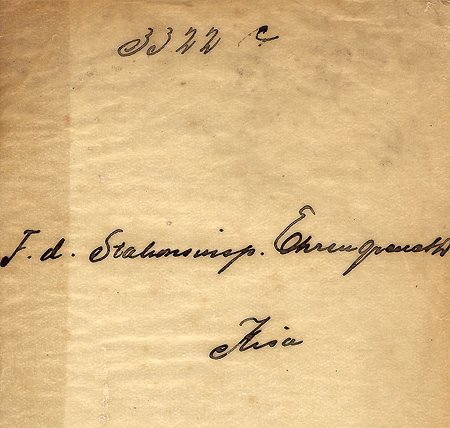 3322 c
F. d. Stationsinsp. Ehrengranath
Kisa